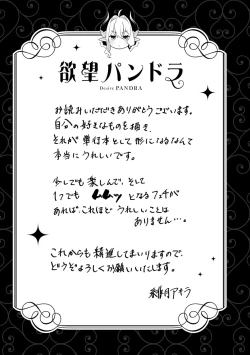 欲望パンドラ
Desire PANDRA
お読みいただきありがとうございます。
自分の好きなものを描き、
それが単行本として形になるなんて
本当にうれしいです。
少しでも楽しんで、そして
1つでもムムッとなるフェチが
あれば、これほどうれしいことは
ありません…。
これからも精進してまいりますので、
どうぞよろしくお願いいたします。
緋月アキラ